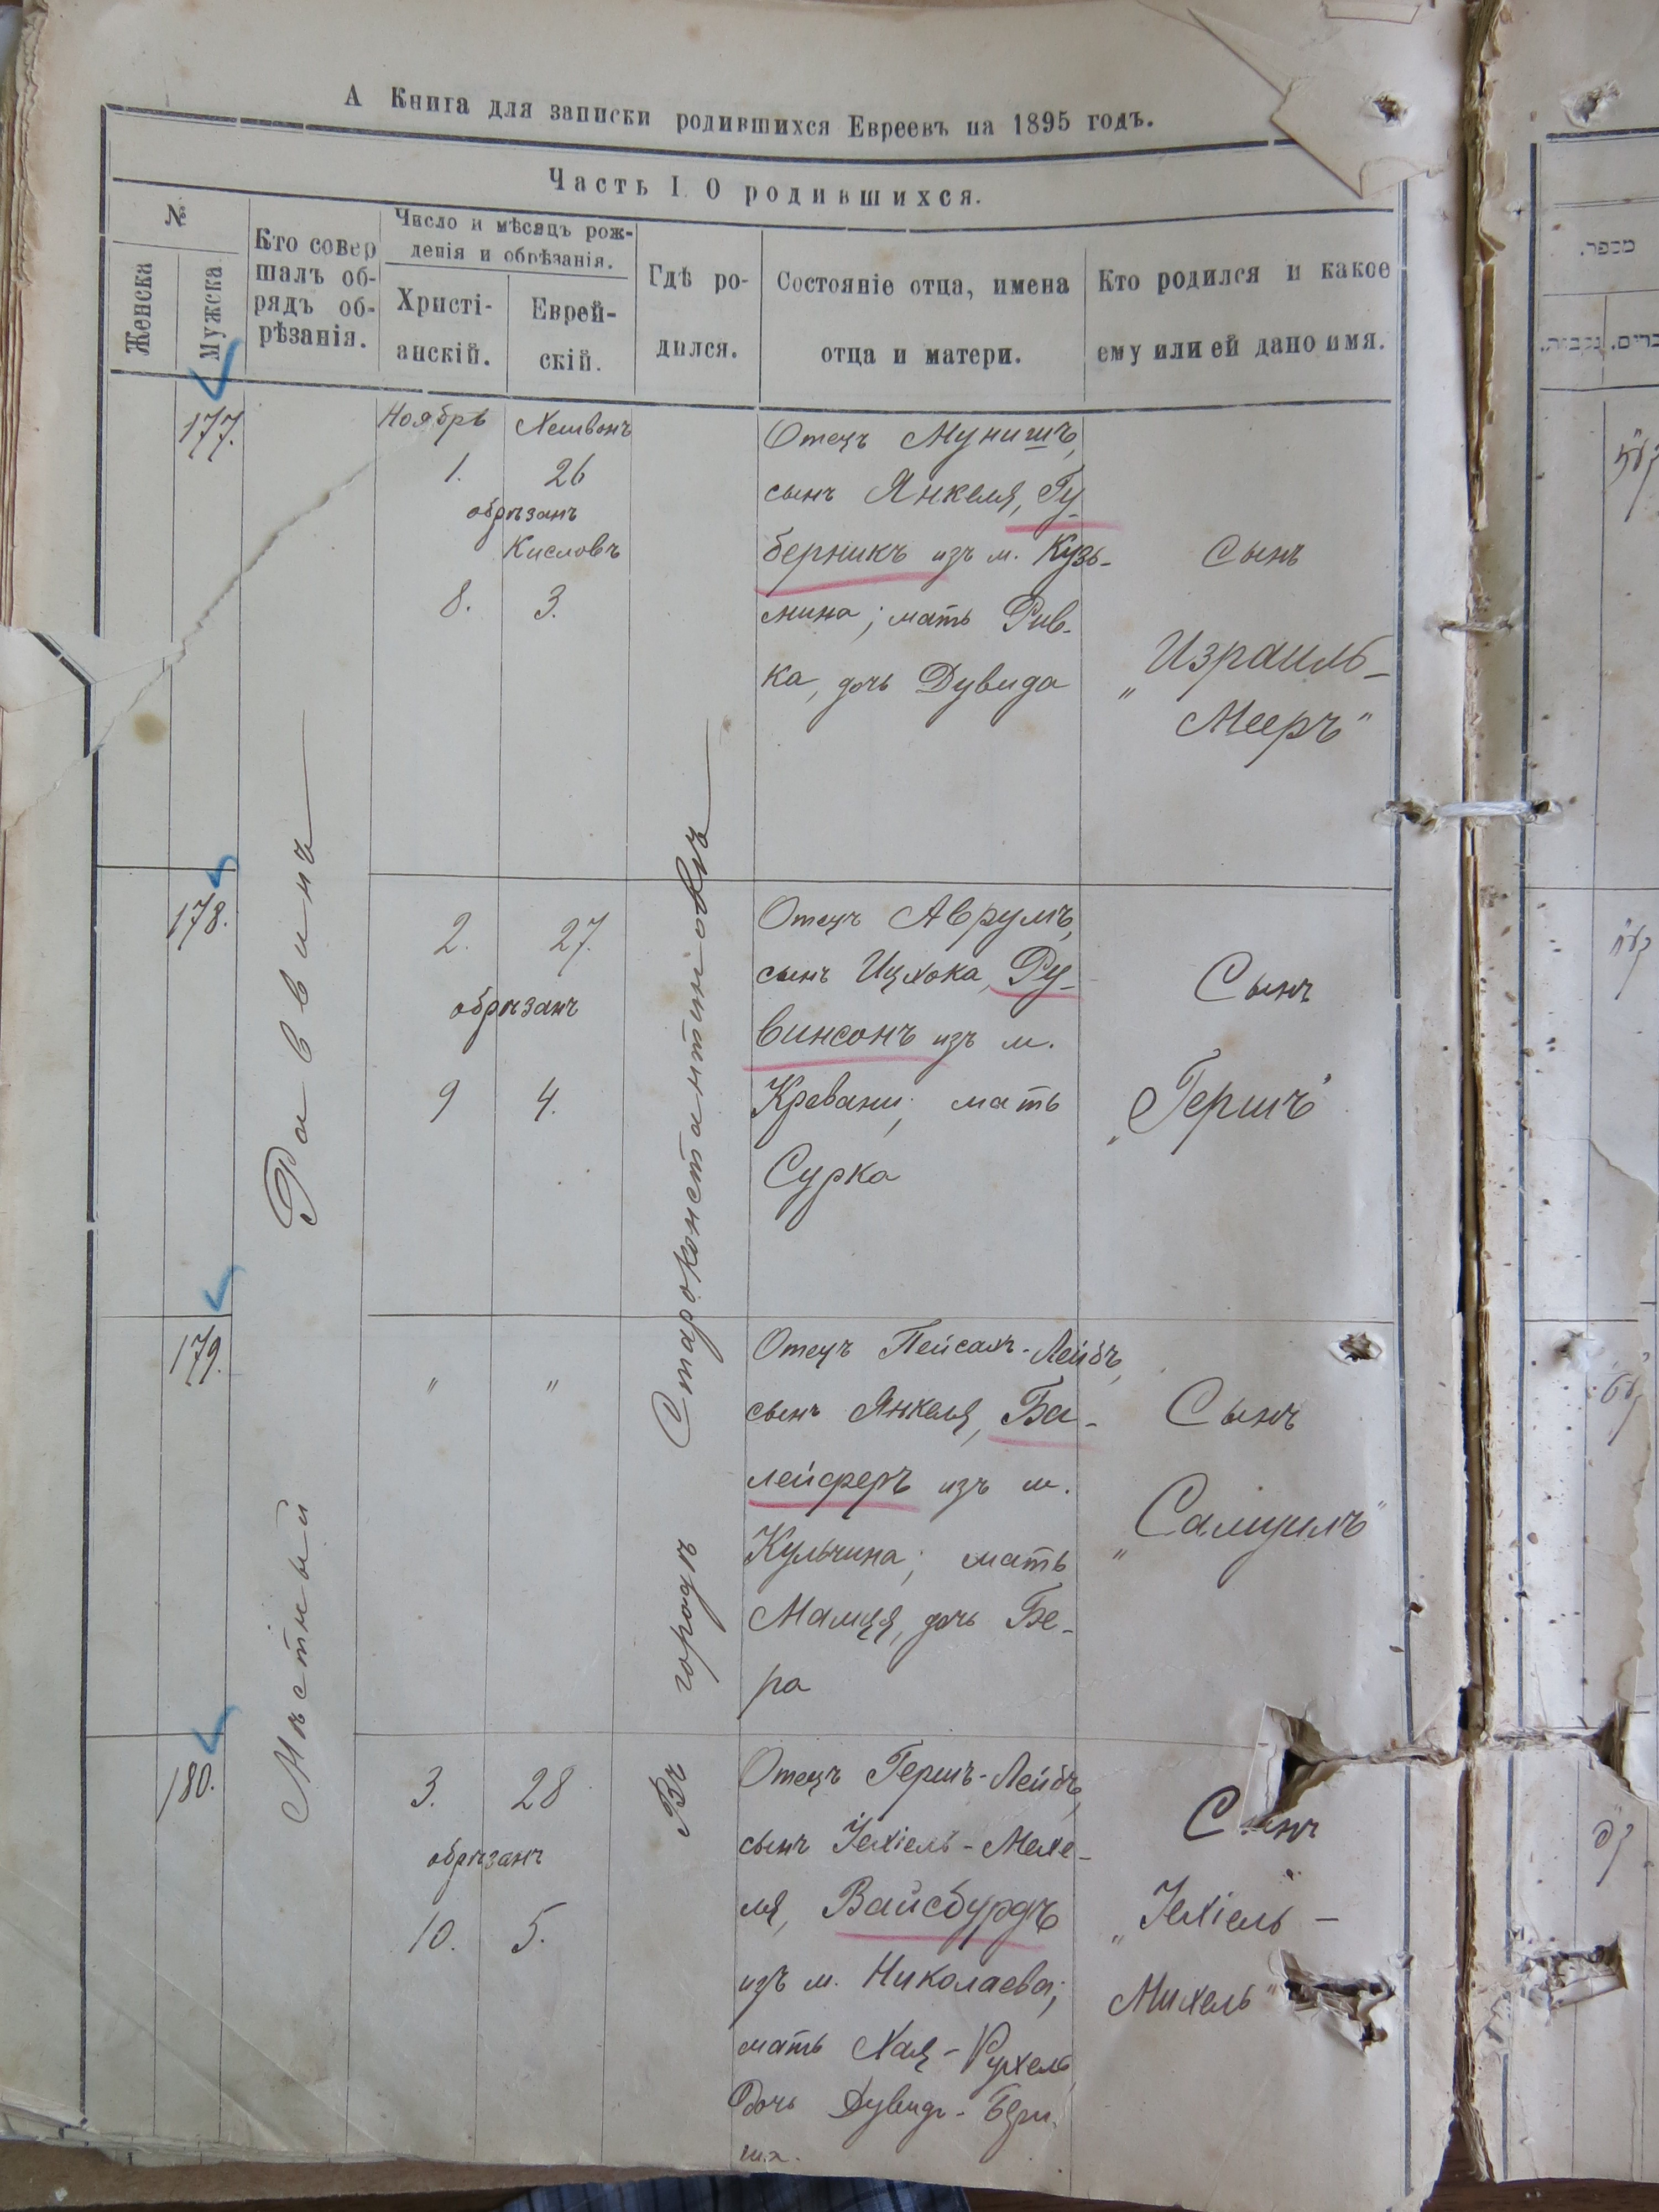 А Книга для записки родившихся Евреевъ на 1895 годъ.
Часть I. О родившихся.
№
Женска
Мужска
Кто совер
шалъ об-
рядъ об-
рѣзанія.
Число и мѣсяцъ рож-
денія и обрѣзанія.
Христі-
анскій.
Еврей-
скій.
Гдѣ ро-
дился.
Состояніе отца, имена
отца и матери.
Кто родился и какое
ему или ей дано имя.
Мѣстный Раввинъ
Въ городѣ Староконстантиновѣ
177.
Ноябрь Хешвонъ
1. 26
обрѣзанъ
Кисловъ
8. 3.
Отецъ Мунишъ,
сынъ Янкеля, Гу-
берникъ изъ м. Кузь-
мина; мать Рив-
ка, дочь Дувида
Сынъ
„Израиль-
Мееръ"
178.
2. 27.
обрѣзанъ
9 4.
Отецъ Аврумъ,
сынъ Ицхока, Ру-
винсонъ изъ м.
Кревани; мать
Сурка
Сынъ
„Гершъ"
179.
" "
Отецъ Пейсахъ-Лейбъ,
сынъ Янкеля, Ба-
лейферъ изъ м.
Кульчина; мать
Мамця, дочь Бе-
ра
Сынъ
„Самуилъ"
180.
3. 28
обрѣзанъ
10. 5.
Отецъ Гершъ-Лейбъ,
сынъ Іехіель-Михе-
ля, Вайсбурдъ
изъ м. Николаева;
мать Хая-Рухель
дочь Дувидъ-Бери-
ша.
Сынъ
„Іехіель-
Михель"
מספר.
נקבות.
זכרים.